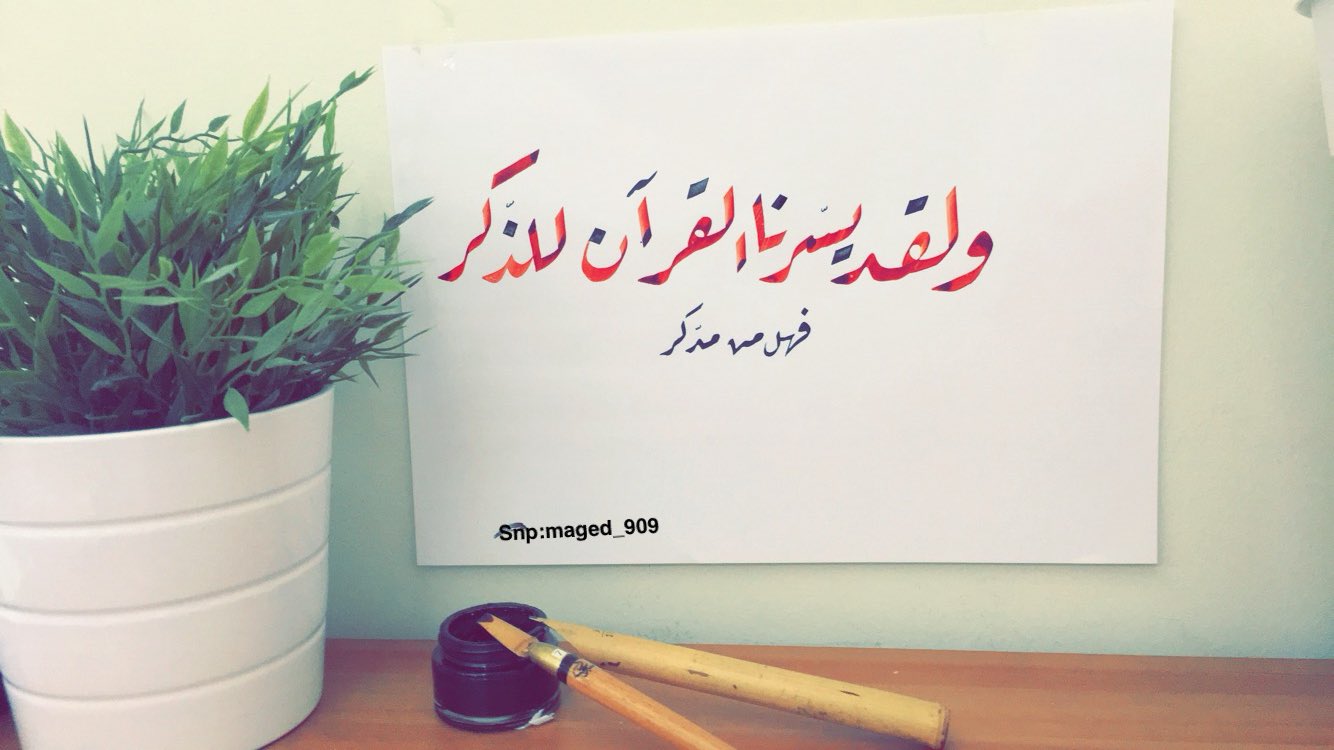 ولقد يسّرنا القرآن للذّكر
فهل من مدّكر
Snp:maged_909